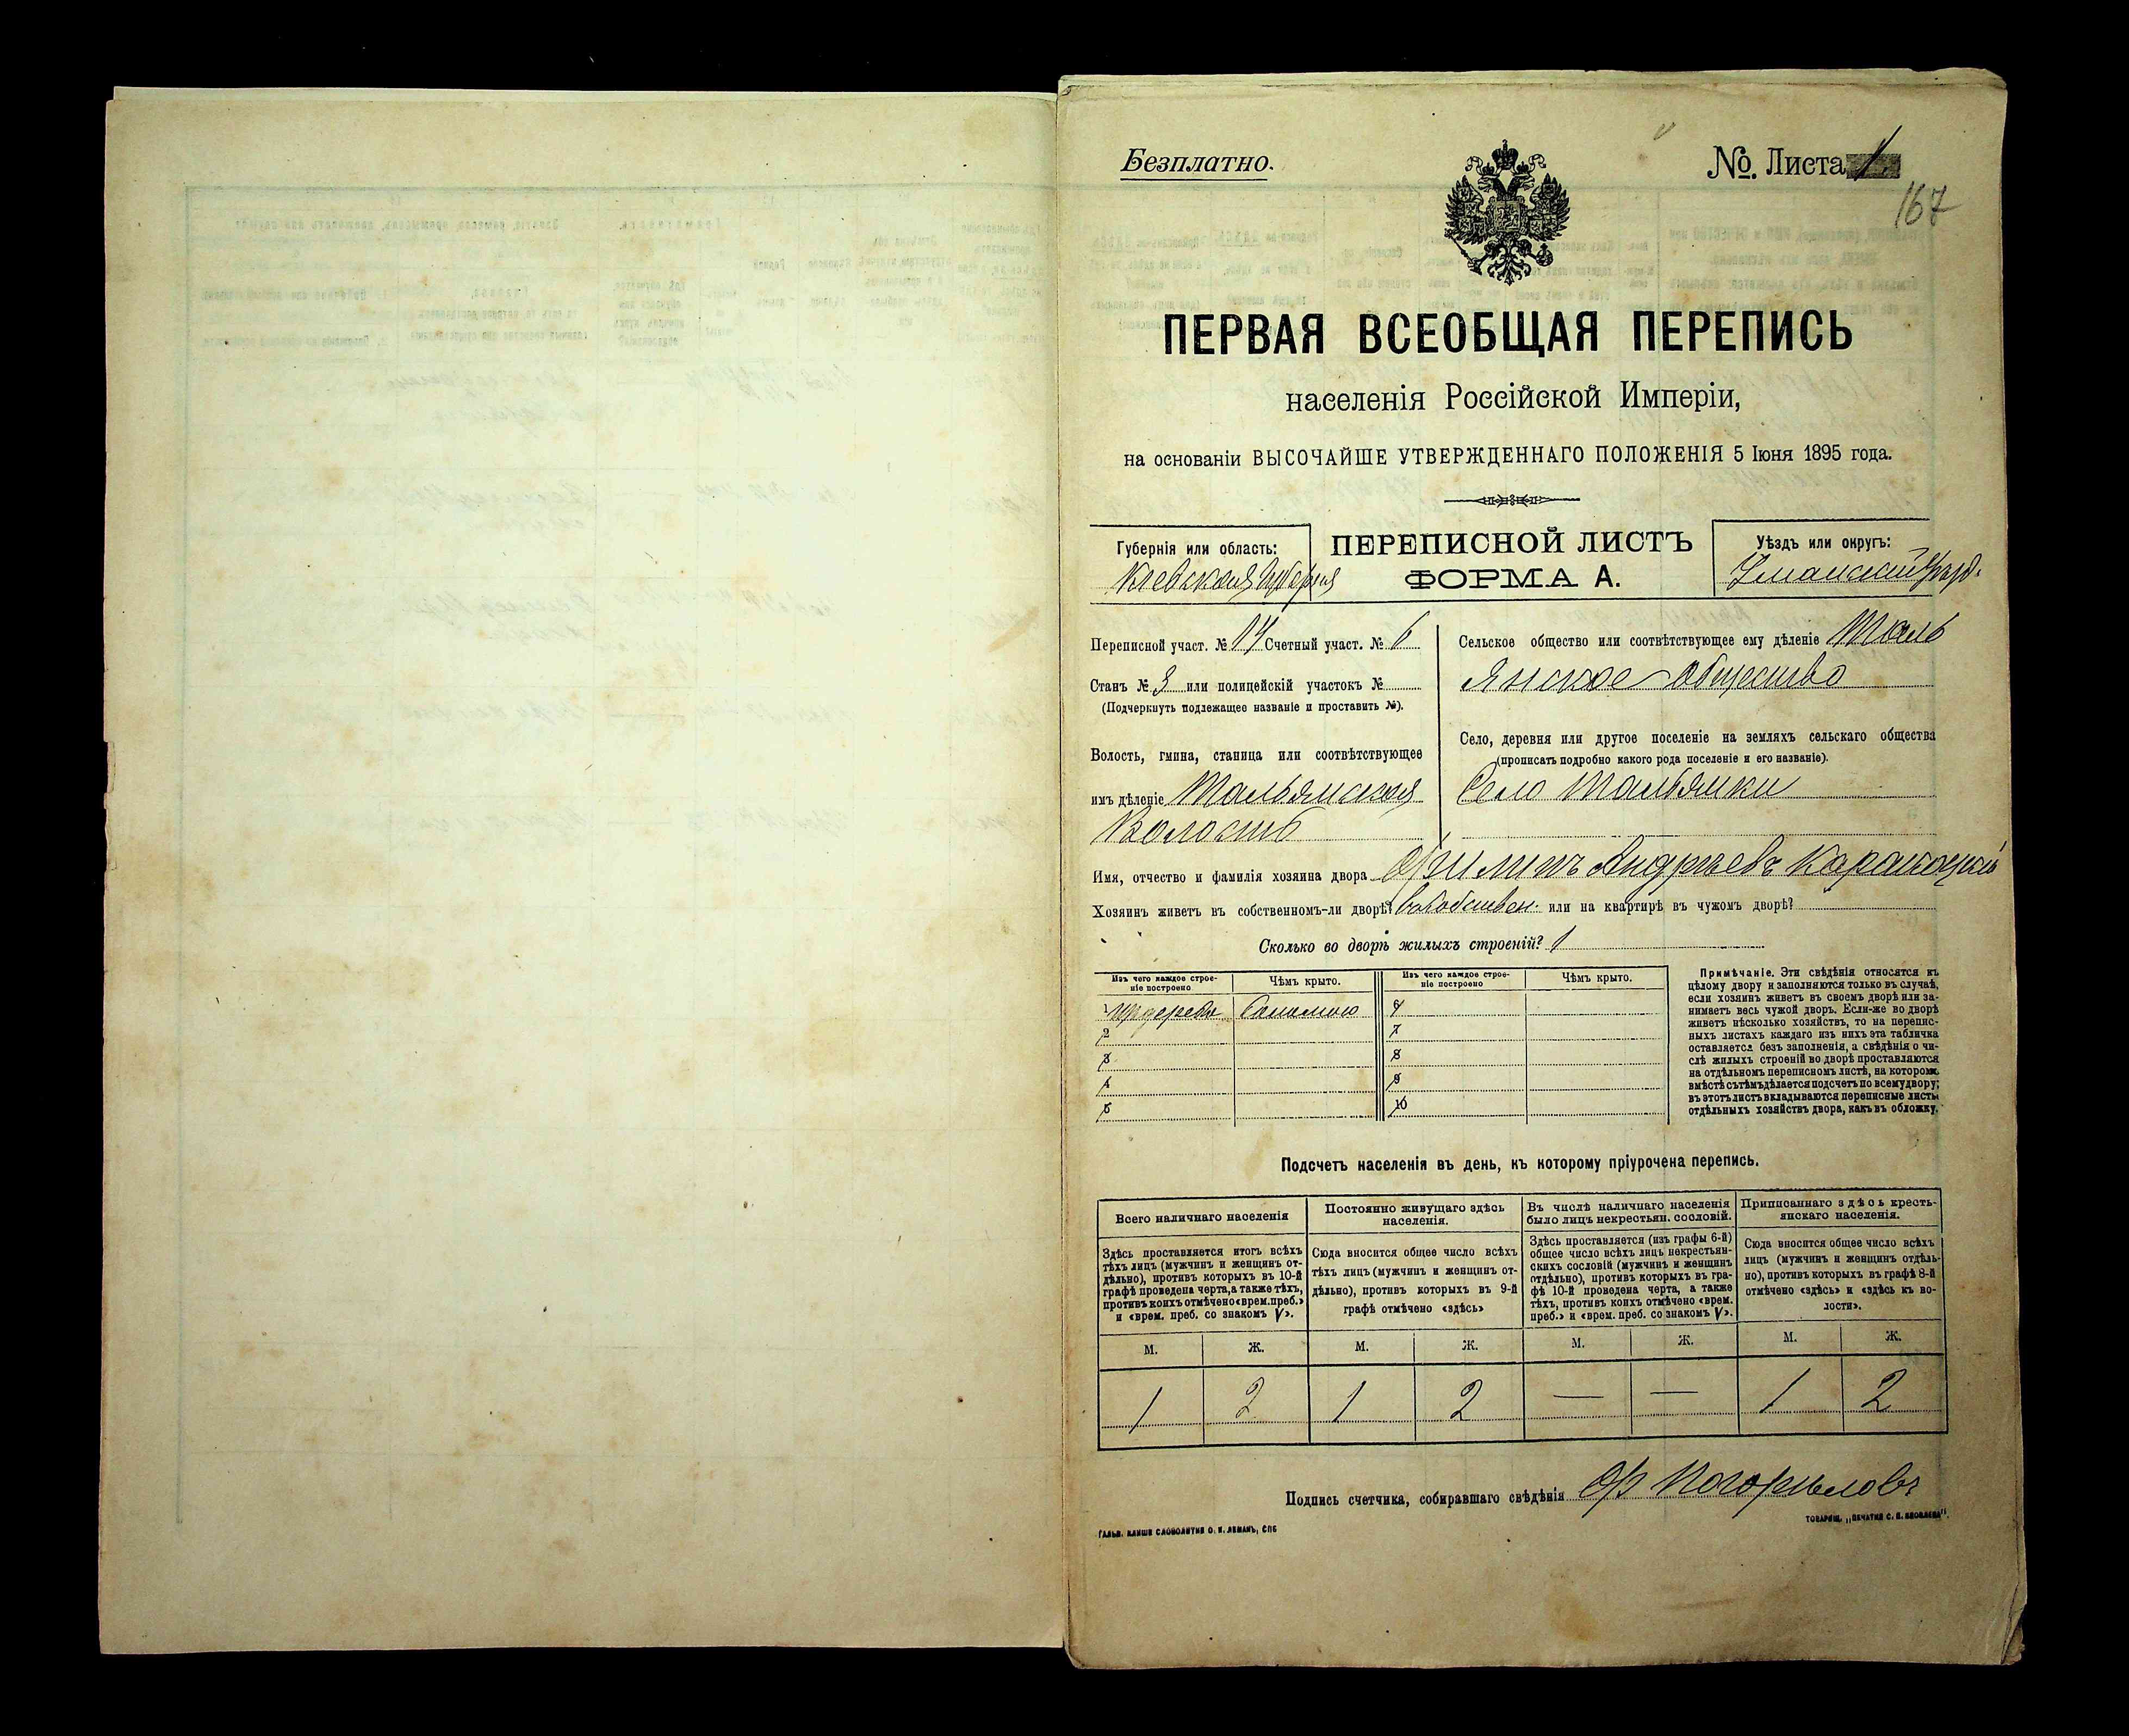 Безплатно.
№ Листа 1
167
ПЕРВАЯ ВСЕОБЩАЯ ПЕРЕПИСЬ
населенія Россійской Имперіи,
на основаніи ВЫСОЧАЙШЕ УТВЕРЖДЕННАГО ПОЛОЖЕНІЯ 5 Іюня 1895 года.
Губернія или область:
Кіевская Губернія
ПЕРЕПИСНОЙ ЛИСТЪ
ФОРМА А.
Уѣздъ или округъ:
Уманскій Уѣзд.
Переписной участ. № 14 Счетный участ. № 6
Станъ № 3 или полицейскій участокъ №
(Подчеркнуть подлежащее названіе и проставить №).
Волость, гмина, станица или соотвѣтствующее
имъ дѣленіе Тальянская
Волость
Сельское общество или соотвѣтствующее ему дѣленіе Таль
янское общество
Село, деревня или другое поселеніе на земляхъ сельскаго общества
(прописать подробно какого рода поселеніе и его названіе).
Село Тальянки
Имя, отчество и фамилія хозяина двора Филипъ Андреевъ
Хозяинъ живетъ въ собственномъ-ли дворѣ? въ собствен. или на квартирѣ въ чужомъ дворѣ?
Сколько во дворѣ жилыхъ строеній? 1
Изъ чего каждое строе-
ніе построено
Чѣмъ крыто.
Изъ чего каждое строе-
ніе построено
Чѣмъ крыто.
1 Соломою 6
2 7
3 8
4 9
5 10
Примѣчаніе. Эти свѣдѣнія относятся къ
цѣлому двору и заполняются только въ случаѣ,
если хозяинъ живетъ въ своемъ дворѣ или за-
нимаетъ весь чужой дворъ. Если-же во дворѣ
живетъ нѣсколько хозяйствъ, то на перепис-
ныхъ листахъ каждаго изъ нихъ эта табличка
оставляется безъ заполненія, а свѣдѣнія о чи-
слѣ жилыхъ строеній во дворѣ проставляются
на отдѣльномъ переписномъ листѣ, на которомъ
вмѣстѣ съ тѣмъ дѣлается подсчетъ по всему двору;
въ этотъ листъ вкладываются переписные листы
отдѣльныхъ хозяйствъ двора, какъ въ обложку.
Подсчетъ населенія въ день, къ которому пріурочена перепись.
Всего наличнаго населенія
Здѣсь проставляется итогъ всѣхъ
тѣхъ лицъ (мужчинъ и женщинъ от-
дѣльно), противъ которыхъ въ 10-й
графѣ проведена черта, а также тѣхъ,
противъ коихъ отмѣчено «врем. преб.»
и «врем. преб. со знакомъ V».
Постоянно живущаго здѣсь
населенія.
Сюда вносится общее число всѣхъ
тѣхъ лицъ (мужчинъ и женщинъ от-
дѣльно), противъ которыхъ въ 9-й
графѣ отмѣчено «здѣсь»
Въ числѣ наличнаго населенія
было лицъ некрестьян. сословій.
Здѣсь проставляется (изъ графы 6-й)
общее число всѣхъ лицъ некрестьян-
скихъ сословій (мужчинъ и женщинъ
отдѣльно), противъ которыхъ въ гра-
фѣ 10-й проведена черта, а также
тѣхъ, противъ коихъ отмѣчено «врем.
преб.» и «врем. преб. со знакомъ V».
Приписаннаго здѣсь кресть-
янскаго населенія.
Сюда вносится общее число всѣхъ
лицъ (мужчинъ и женщинъ отдѣль-
но), противъ которыхъ въ графѣ 8-й
отмѣчено «здѣсь» и «здѣсь къ во-
лости».
М. Ж. М. Ж. М. Ж. М. Ж.
1 2 1 2 — — 1 2
Подпись счетчика, собиравшаго свѣдѣнія Ф Погорѣловъ
ГАЛЬВ. КЛИШЕ СЛОВОЛИТНИ О. И. ЛЕМАНЪ, СПБ
ТОВАРИЩ. „ПЕЧАТНЯ С. П. ЯКОВЛЕВА“.